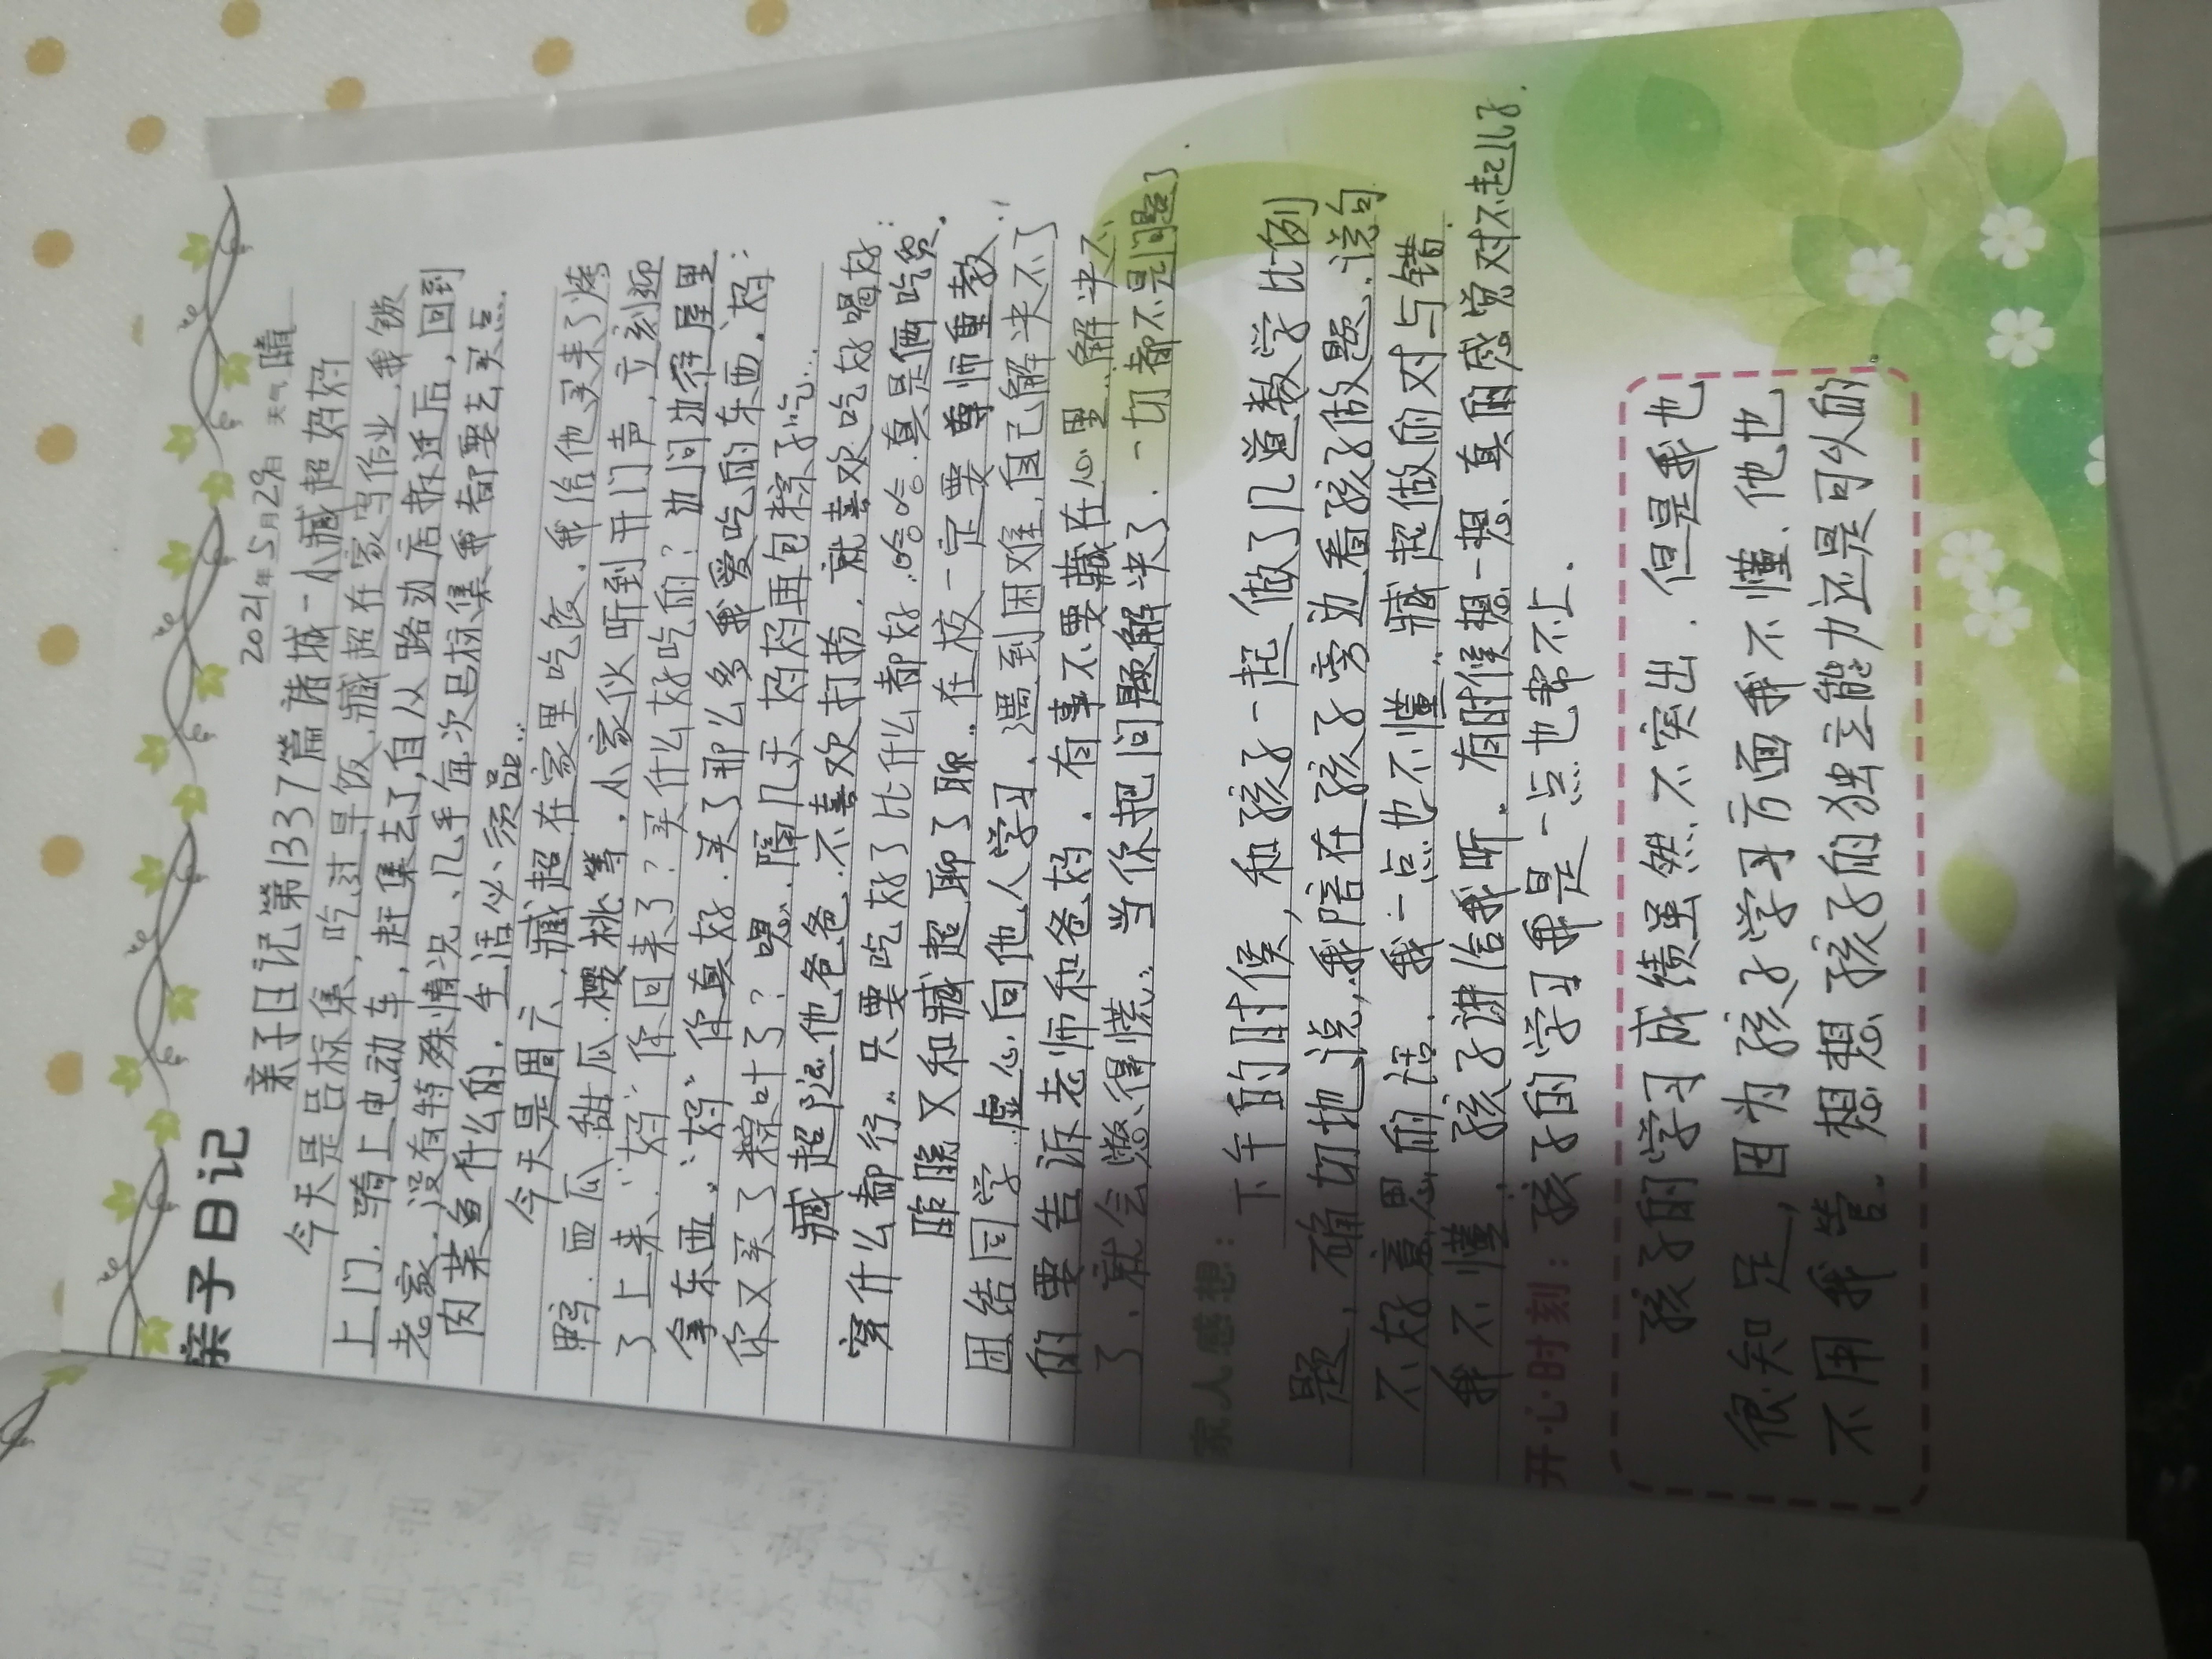 亲子日记
2021年5月29日 天气 晴
亲子日记第1337篇诸城-小臧超妈妈
今天是吕标集,吃过早饭,臧超在家写作业,我锁
上门.骑上电动车,赶集去了,自从路边店拆迁后,回到
老家.没有特殊情况、几乎每次吕标集我都要去买点
肉菜鱼什么的.生活必须品..
今天是周六,臧超在家里吃饭.我给他买来了烤
鸭.西瓜.甜瓜.樱桃等,小家伙听到开门声,立刻迎
了上来、"妈"你回来了?买什么好吃的?边问边往屋里
拿东西."妈"你真好.买了那么多我爱吃的东西.妈:
你又买了粽叶了?嗯.隔几天妈妈再包粽子吃...
臧超随他爸爸.不喜欢打扮.就喜欢吃好喝好:
穿什么都行..只要吃好了比什么都好.哈哈.真是俩吃货.
临睡又和臧超聊了聊..在校一定要尊师重教.
团结同学.虚心向他人学习.遇到困难,自己解决不了
的要告诉老师和爸妈.有事不要藏在心里..解决不
了.就会憋得慌..当你把问题解决了.一切都不是问题了.
家人感想:
下午的时候,和孩子一起做了几道数学比例
题,确切地说,我陪在孩子旁边看孩子做题.说句
不好意思的话.我一点也不懂..臧超做的对与错.
我不懂.孩子讲给我听.有时候想一想.真的感觉对不起儿子.
孩子的学习我是一点也帮不上.
开心时刻:
孩子的学习成绩虽然不突出.但是我也
很知足,因为孩子学习方面我不懂.他也
不用我管.想想孩子的独立能力还是可以的.